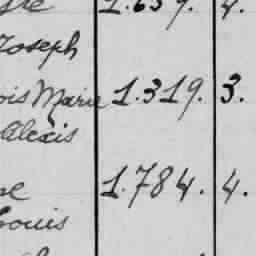 1.639. 4.
Joseph
ois Marie 1.319. 3.
Alexis
1.784. 4.
Louis